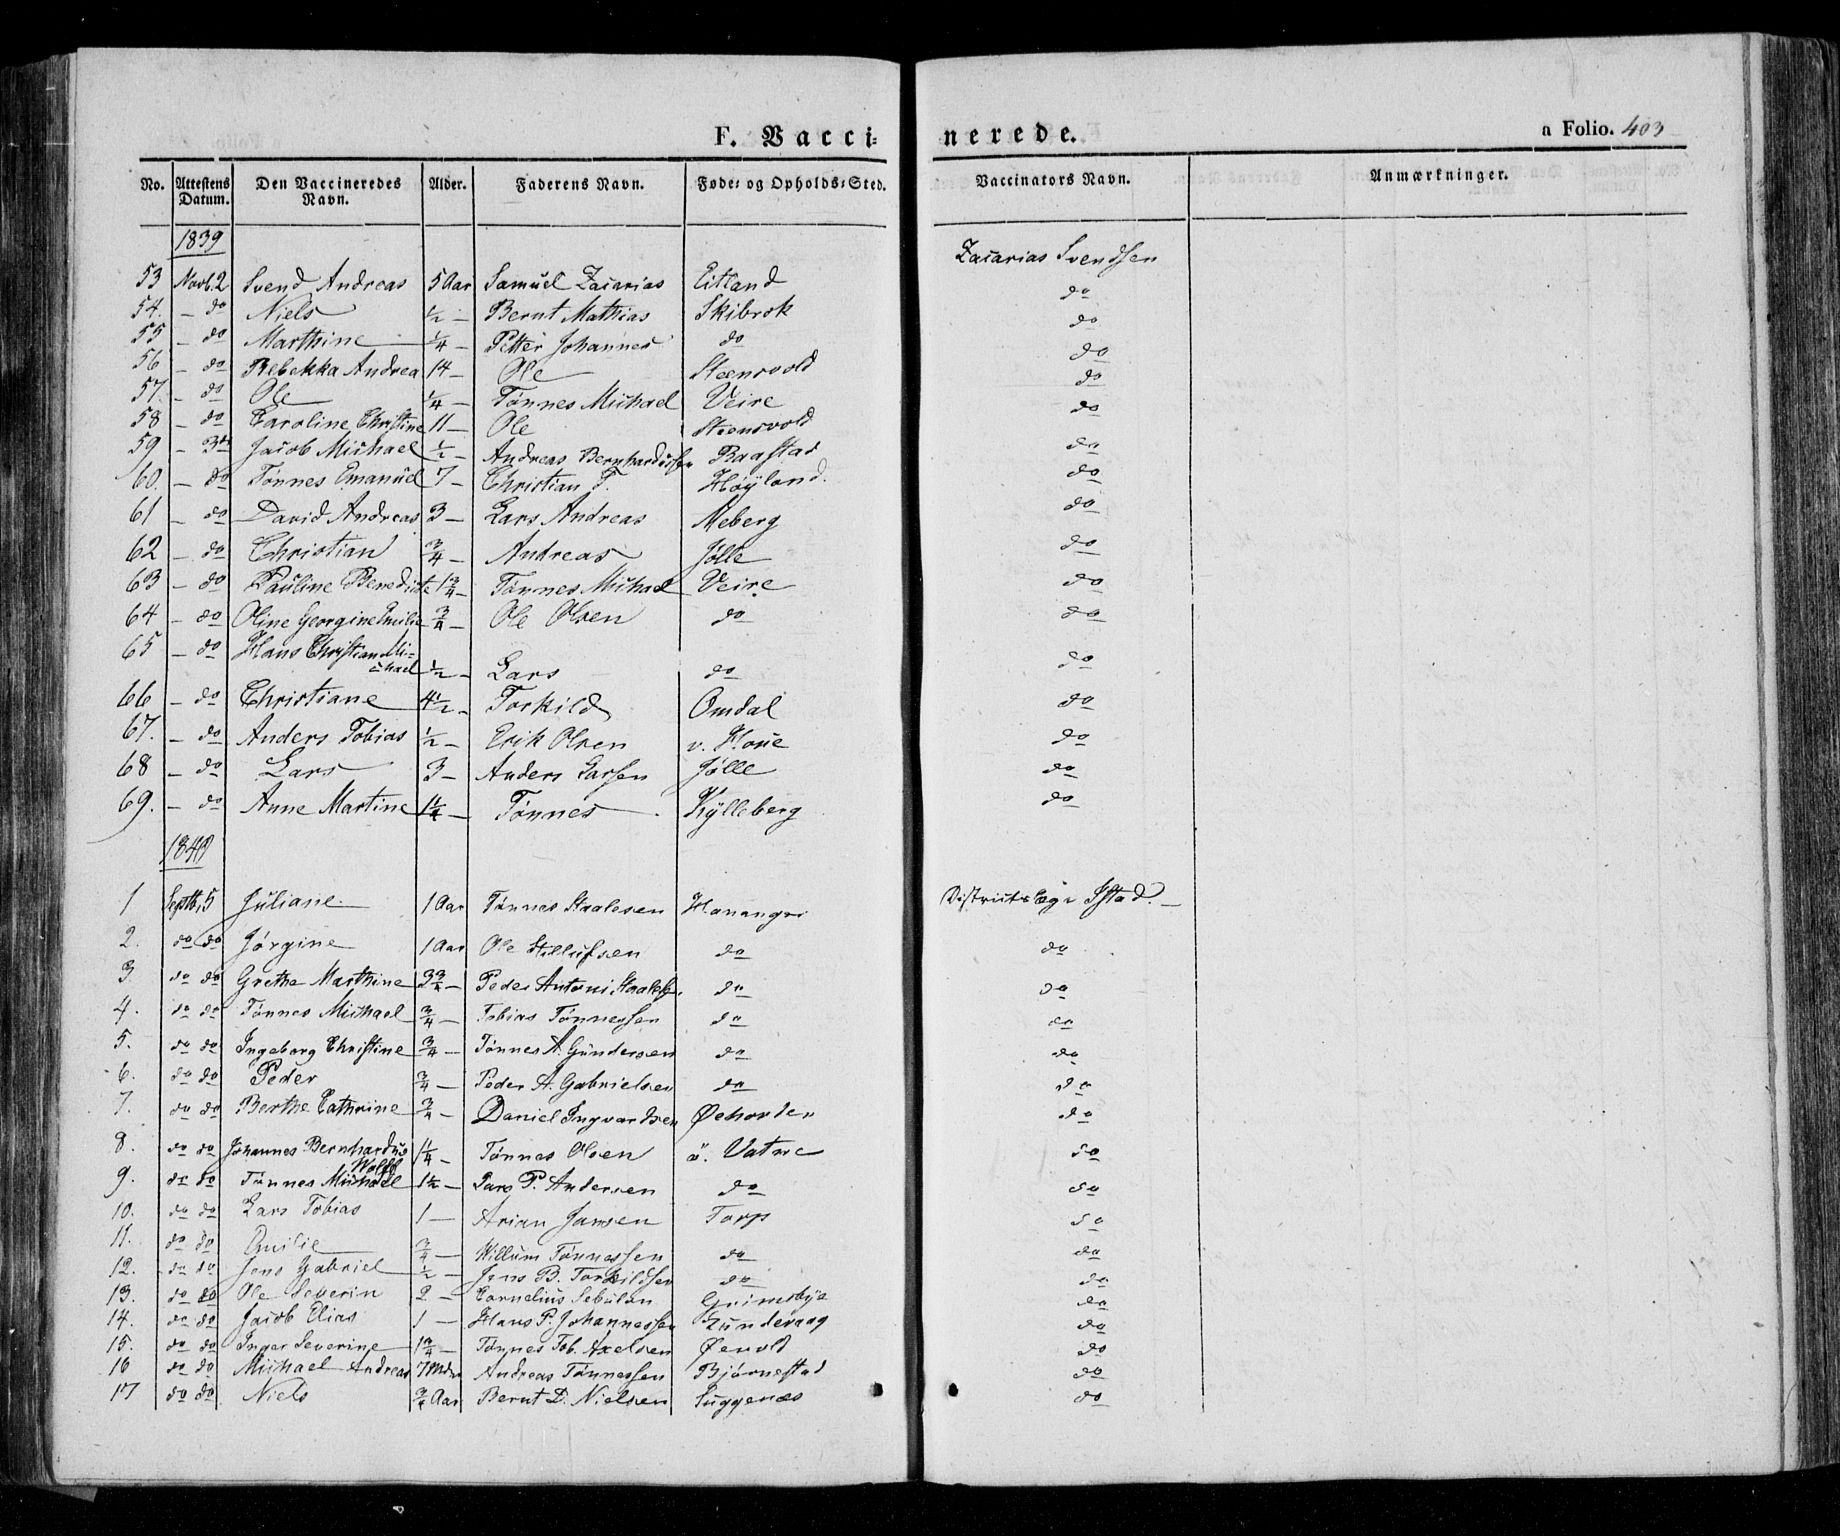 F. Vacci-nerede.
a Folio. 403
No. Attestens Datum. Den Vaccineredes Navn. Alder. Faderens Navn. Føde- og Opholds-Sted. Vaccinators Navn. Anmærkninger.
1839
53 Novb. 2 Svend Andreas 5 Aar Samuel Zacarias Eitland Zacarias Svendsen
54. - do Niels 1/2 - Bernt Mathias Skibrok do
55 - do Marthine 1/4 - Petter Johannes do do
56 - do Rebekka Andrea 14 - Ole Steensvold do
57. - do Ole 1/4 - Tønnes Michael Veire do
58 - do Caroline Christine 11 - Ole Steensvold do
59 - 3die Jacob Michael 1/2 - Andreas Bernhardussen Raastad do
60. - do Tønnes Emanuel 7 - Christian T. Høyland. do
61 - do David Andreas 3 - Lars Andreas Meberg do
62 - do Christian 3/4 - Andreas Jølle do
63 - do Pauline Benedicte 1 3/4 - Tønnes Michael Veire do
64 - do Oline Georgine Emilie 3/4 - Ole Olsen do do
65 - do Hans Christian Mi-
chael 1/2 - Lars do do
66 - do Christiane 4 1/2 - Torkild Omdal do
67. - do Anders Tobias 1/2 - Erik Olsen v. Houe do
68 - do Lars 3 - Anders Larsen Jølle do
69. - do Anne Martine 1 1/4 - Tønnes Kylleberg do
1840
1 Septb. 5 Juliane 1 Aar Tønnes Staalesen Hananger Districtslæge Ystad.
2. do do Jørgine 1 Aar Ole Ellufsen do do
3. do do Grethe Marthine 3 3/4 - Peder Antoni Staales. do do
4. do do Tønnes Michael 3/4 - Tobias Tønnessen do do
5. do do Ingeborg Christine 3/4 - Tønnes A. Gundersen do do
6. do do Peder 3/4 - Peder A. Gabrielsen do do
7. do do Berthe Cathrine 3/4 - Daniel Ingvardsen Øehorden do
8. do do Johannes Bernhardus
Wolff 1 1/4 - Tønnes Olsen ö. Vatne do
9. do do Tønnes Michael 1 1/2 - Lars P. Andersen do do
10. do do Lars Tobias 1 - Arian Jansen Torp do
11. do do Emilie 3/4 - Willum Tønnessen do do
12. do do Jens Gabriel 1/2 - Jens B. Torkildsen do do
13. do do Ole Severin 2 - Cornelius Sebulon Grimsbye do
14. do do Jacob Elias 1 - Hans P. Johannessen Lundevaag do
15. do do Inger Severine 1 3/4 - Tønnes Tob. Axelsen Øevold do
16 do do Michael Andreas 7 Mdr Andreas Tønnessen Bjørnestad do
17 do do Niels 3/4 Aar Bernt D. Nielsen Luggenæs do